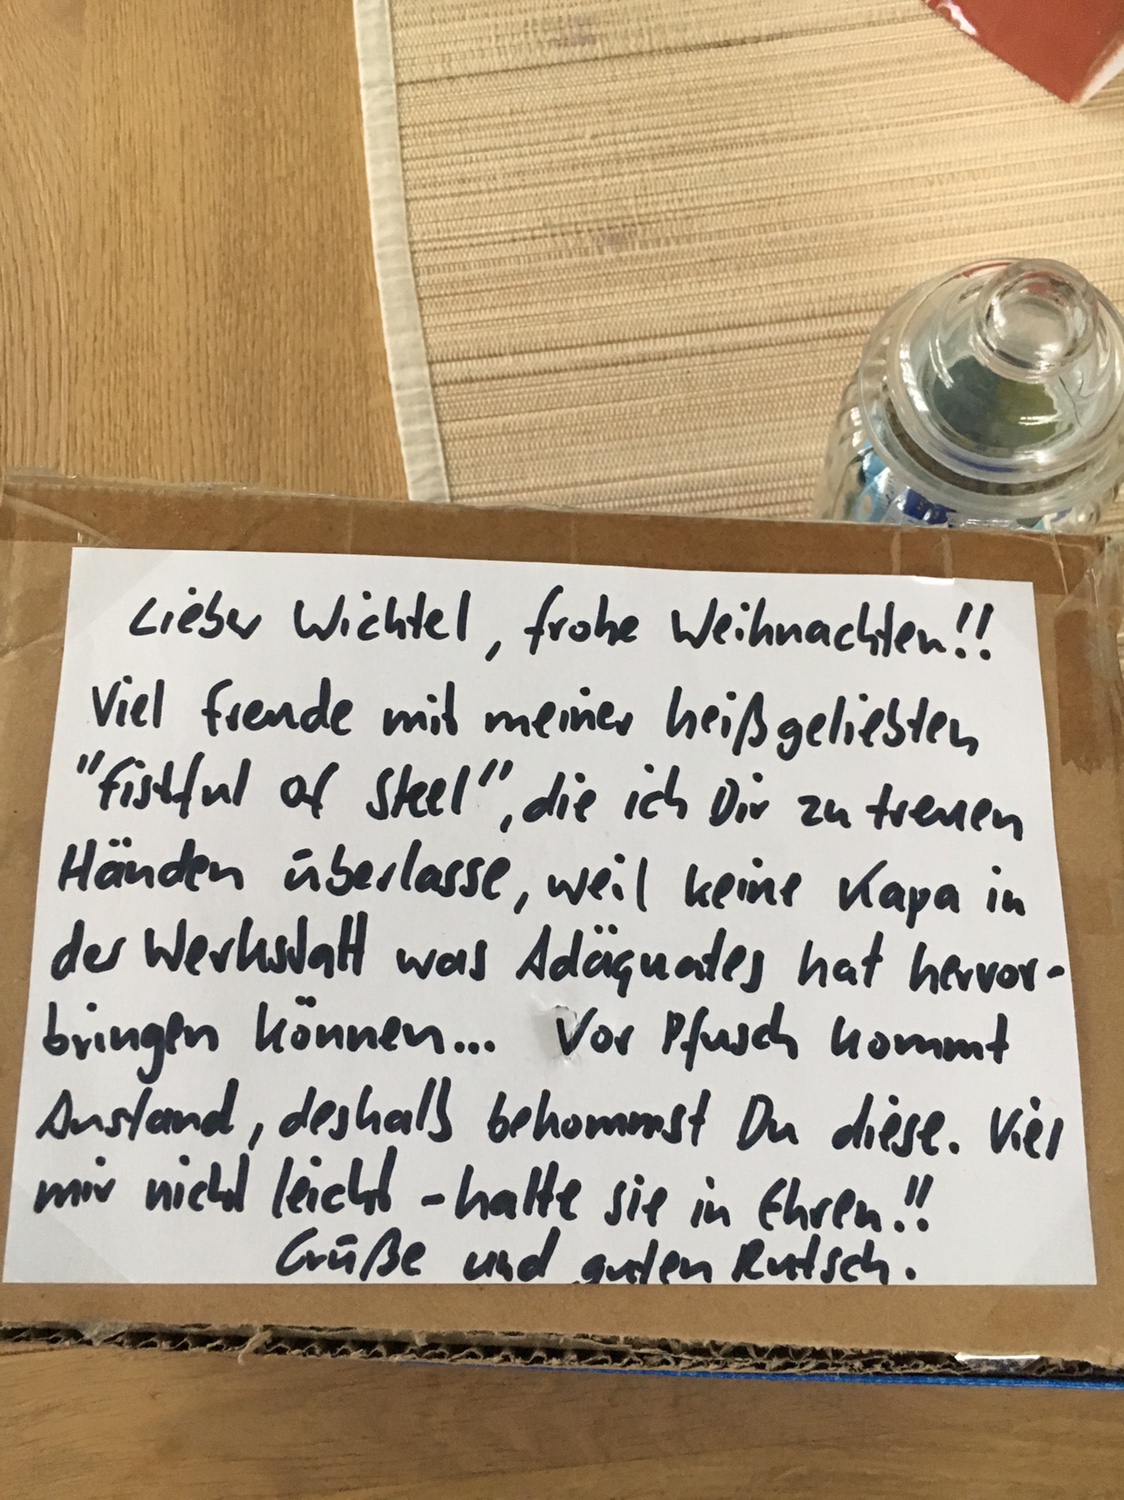 Lieber Wichtel, frohe Weihnachten!!
Viel freude mit meiner heißgeliebten
"Fistful of Steel", die ich Dir zu treuen
Händen überlasse, weil keine Kapa in
der Werkstatt was Adäquates hat hervor-
bringen können... Vor Pfusch kommt
Anstand, deshalb bekommst Du diese. Viel
mir nicht leicht - halte sie in Ehren!!
Grüße und guten Rutsch.